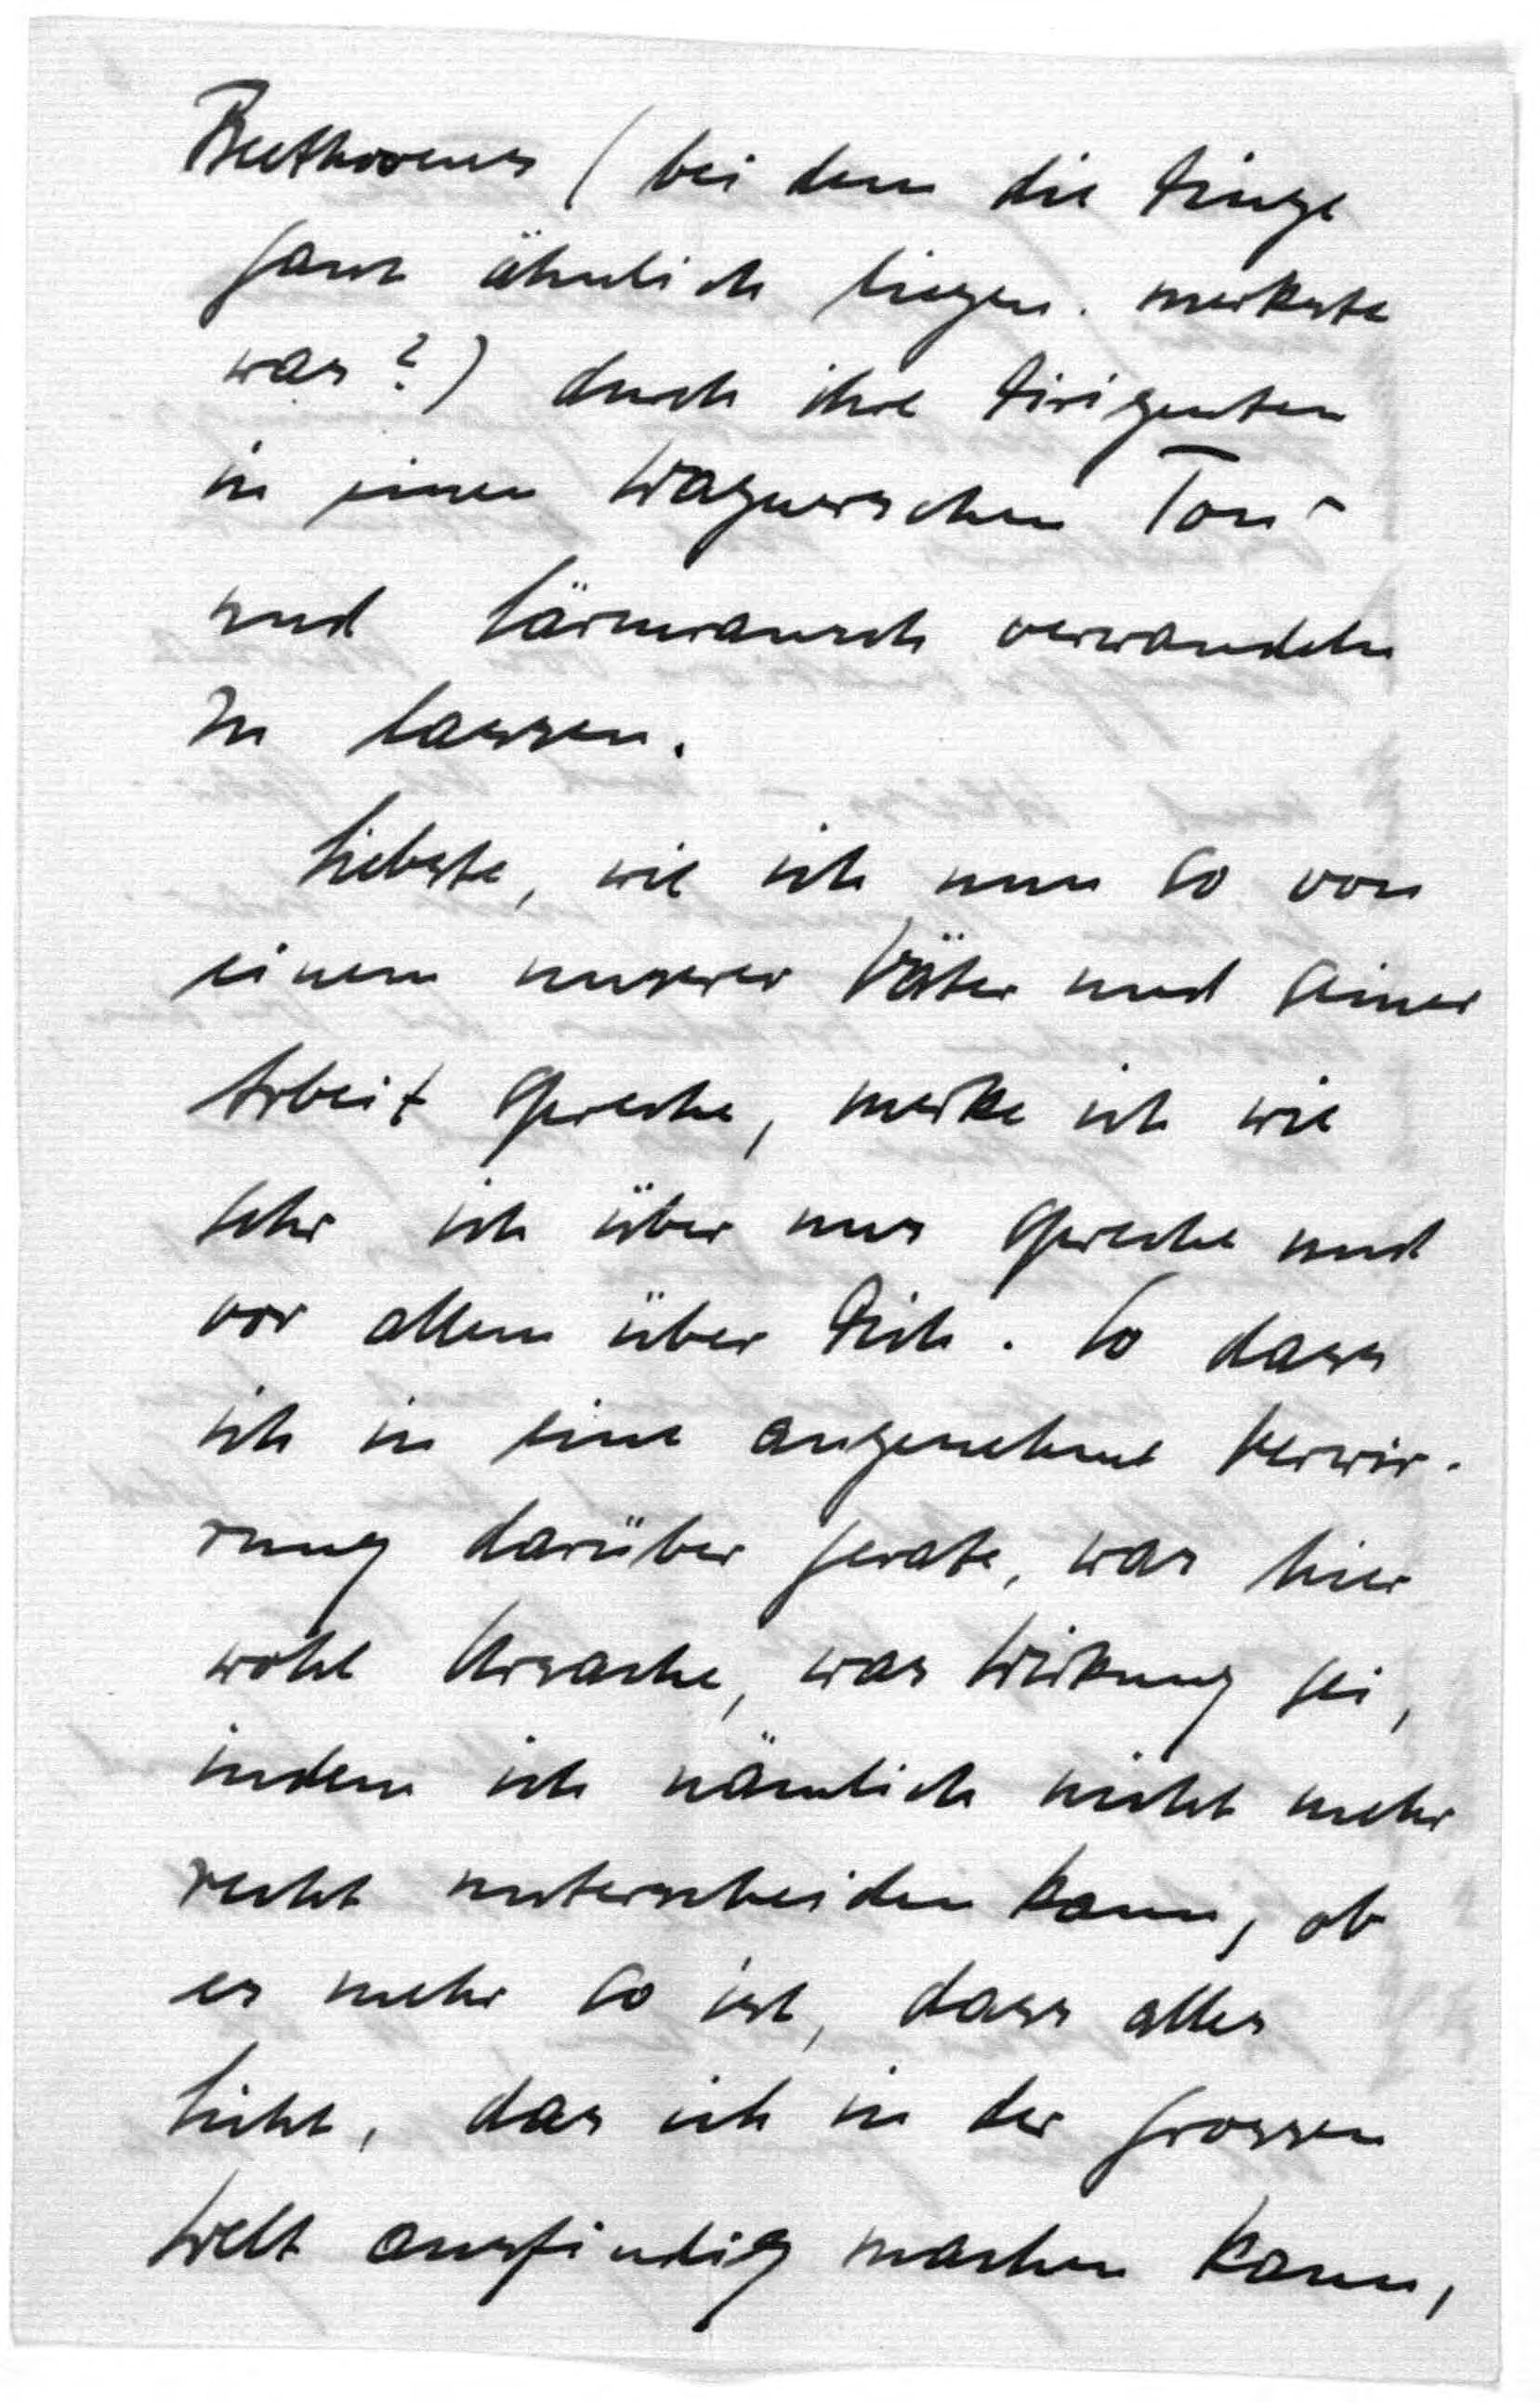 Beethovens (bei dem die Dinge
ganz ähnlich liegen. merkste
was?) durch ihre Dirigenten
in einen Wagnerschen Ton-
und Lärmrausch verwandeln
zu lassen.
Liebste, wie ich nun so von
einem unserer Väter und seiner
Arbeit spreche, merke ich wie
sehr ich über uns spreche und
vor allem über Dich. So dass
ich in eine angenehme Verwir-
rung darüber gerate, was hier
wohl Ursache, was Wirkung sei,
indem ich nämlich nicht mehr
recht unterscheiden kann, ob
es mehr so ist, dass alles
Licht, das ich in der grossen
Welt ausfindig machen kann,